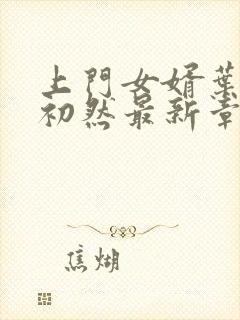 上門女婿葉
初然最新章
焦煳